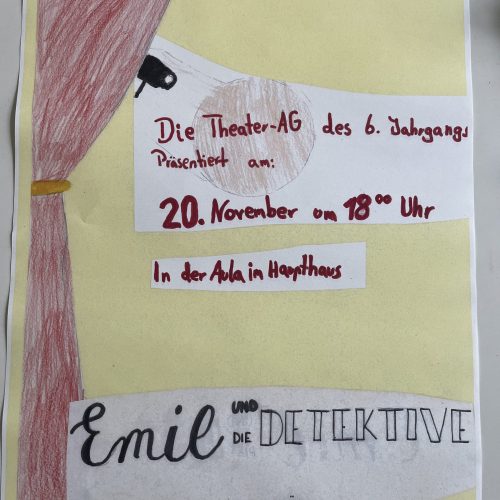 Die Theater-AG des 6. Jahrgangs
Präsentiert am:
20. November um 18⁰⁰ Uhr
In der Aula im Haupthaus
Emil UND DIE DETEKTIVE